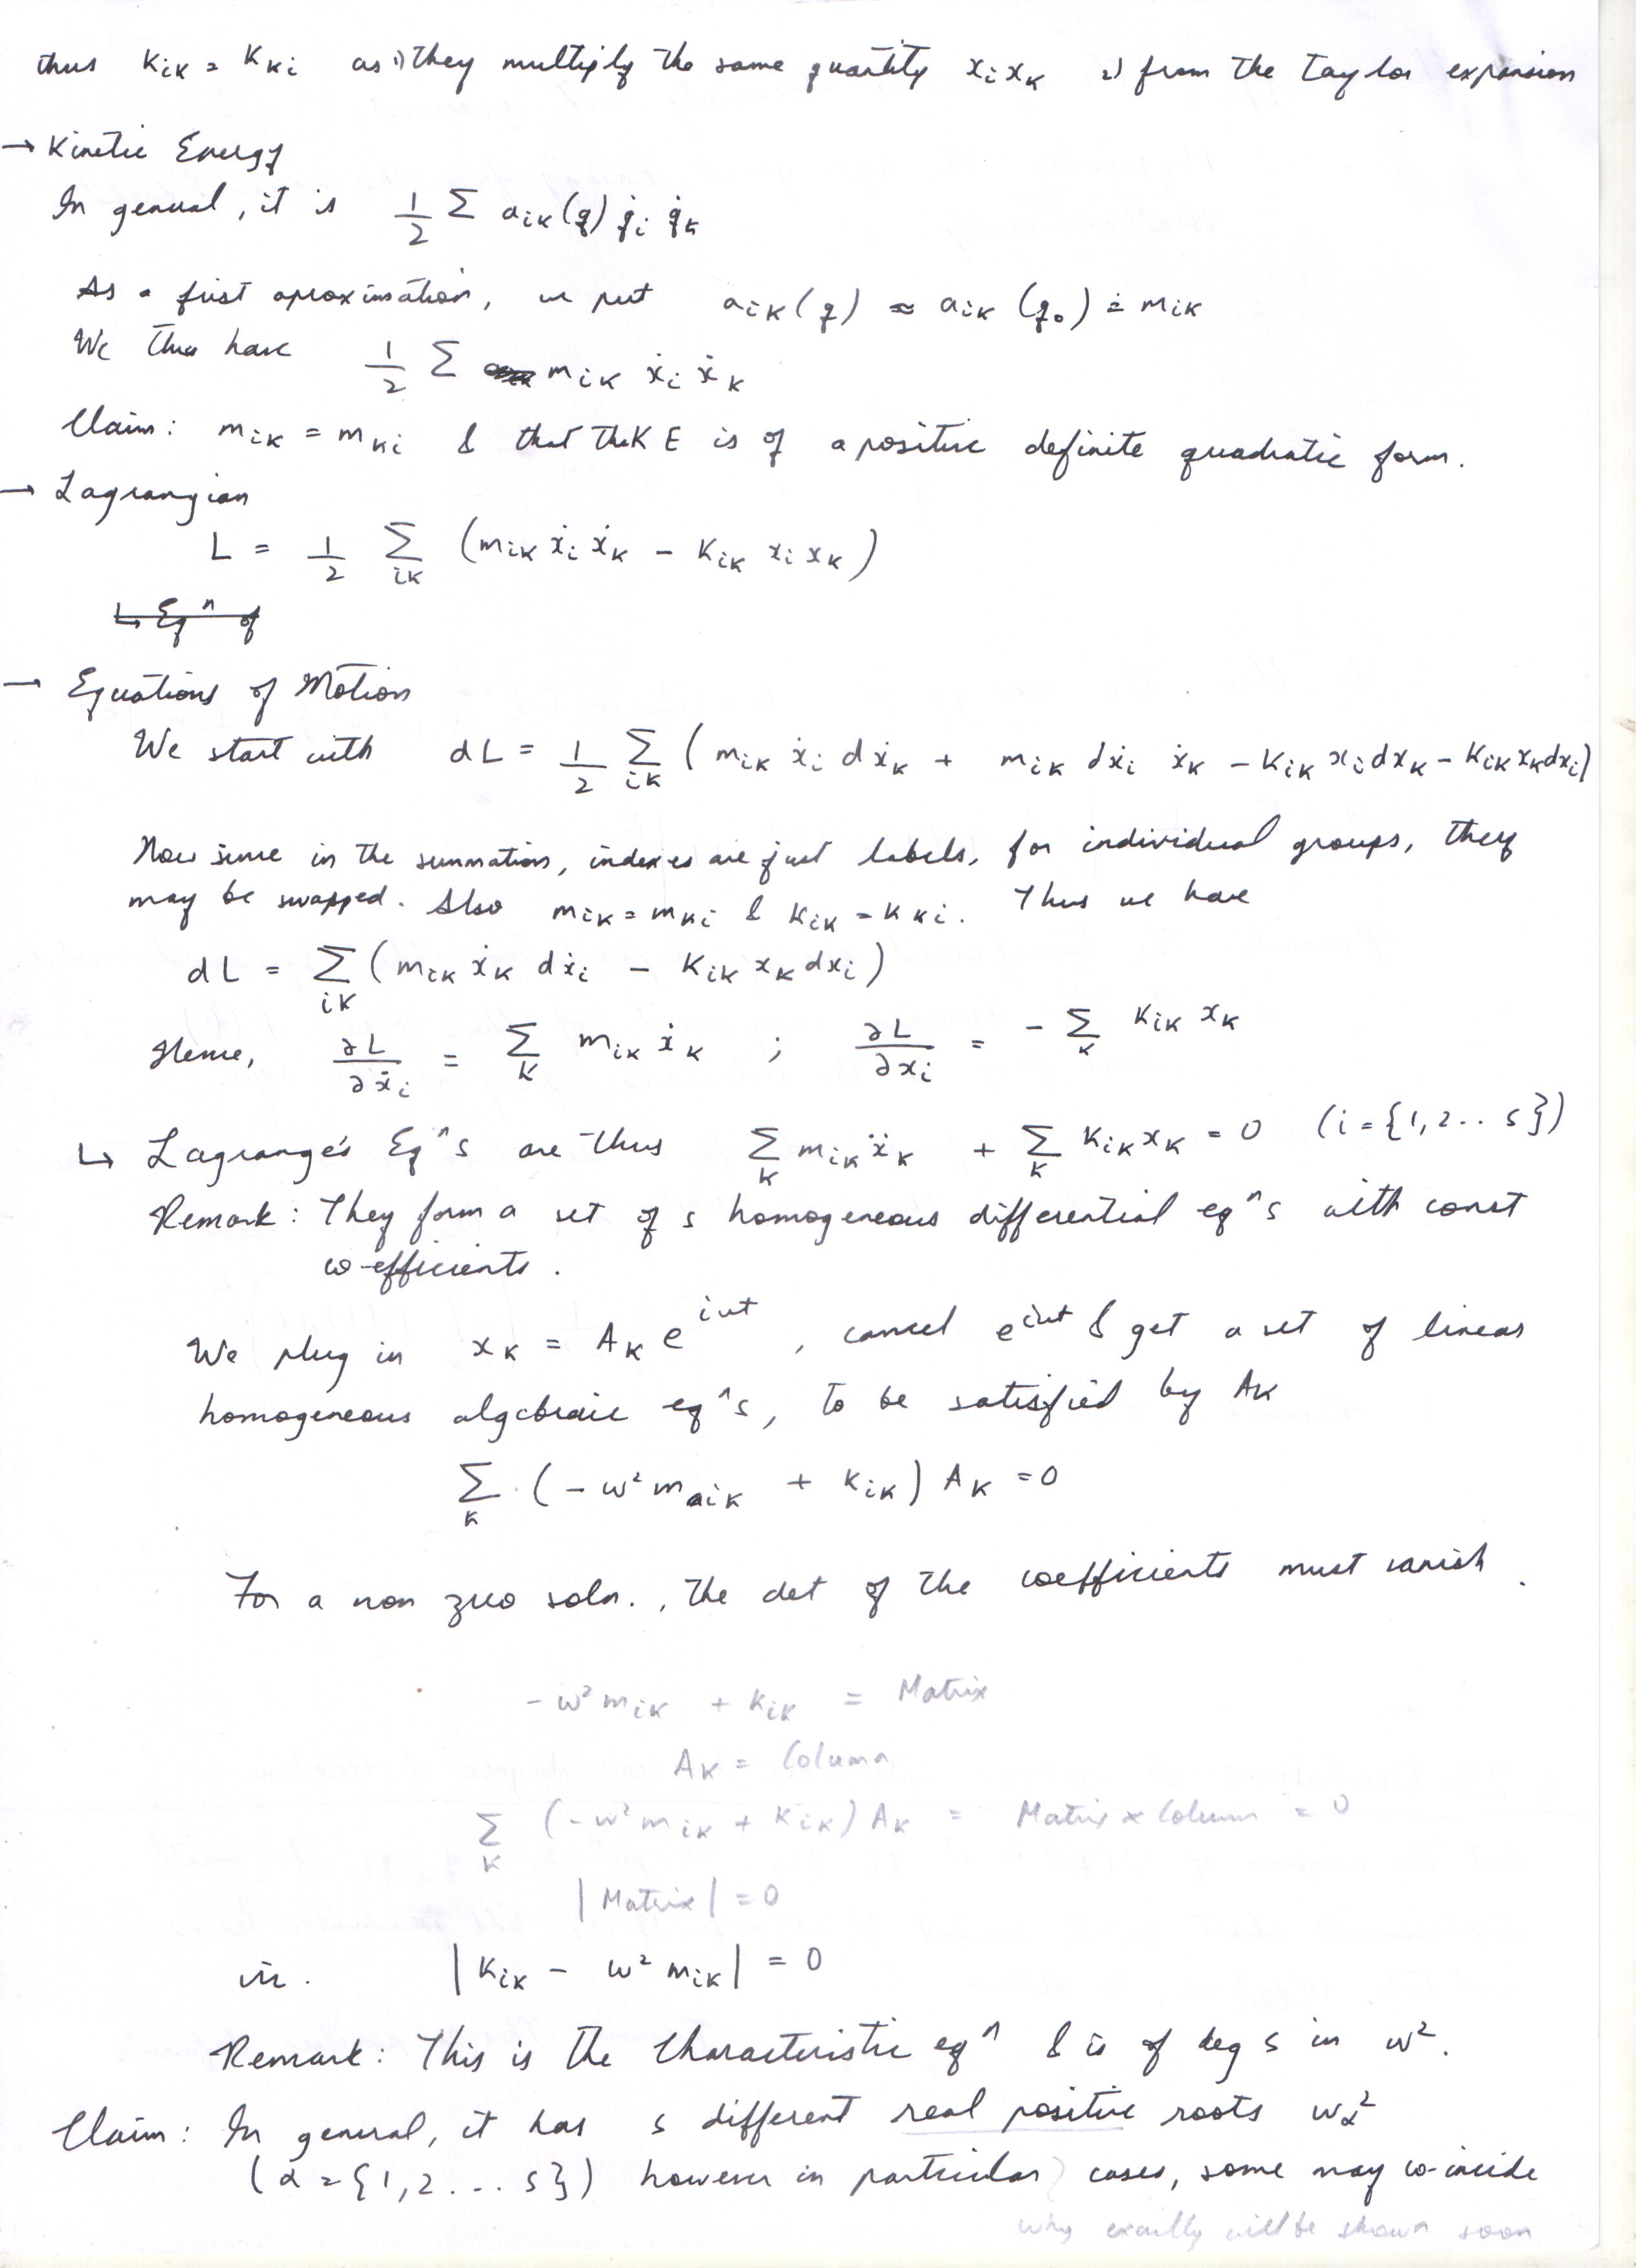 thus Kik = Kki as 1) they multiply the same quantity xixk 2) from the Taylor expansion
→ Kinetic Energy
In general, it is 1/2 Σ aik(q) q̇i q̇k
As a first aproximation, we put aik(q) ≈ aik(q0) ≐ mik
We thus have 1/2 Σ mik ẋi ẋk
Claim: mik = mki & that the KE is of a positive definite quadratic form.
→ Lagrangian
L = 1/2 Σik (mik ẋi ẋk - Kik xi xk)
↳ Eqn of
→ Equations of Motion
We start with dL = 1/2 Σik (mik ẋi dẋk + mik dẋi ẋk - Kik xi dxk - Kik xk dxi)
Now since in the summation, indexes are just labels, for individual groups, they
may be swapped. Also mik = mki & Kik = Kki. Thus we have
dL = Σik (mik ẋk dẋi - Kik xk dxi)
Hence, ∂L/∂ẋi = Σk mik ẋk ; ∂L/∂xi = - Σk Kik xk
↳ Lagrange's Eqns are thus Σk mik ẍk + Σk Kik xk = 0 (i = {1,2.. s})
Remark: They form a set of s homogeneous differential eqns with const
co-efficients.
We plug in xk = Ak e^iωt, cancel e^iωt & get a set of linear
homogeneous algebraic eqns, to be satisfied by Ak
Σk (-ω² mik + Kik) Ak = 0
For a non zero soln., the det of the coefficients must vanish.
-ω² mik + Kik = Matrix
Ak = Column
Σk (-ω² mik + Kik) Ak = Matrix x Column = 0
|Matrix| = 0
viz. |Kik - ω² mik| = 0
Remark: This is the Characteristic eqn & is of deg s in ω².
Claim: In general, it has s different real positive roots ωα²
(α = {1,2... s}) however in particular cases, some may co-incide
why exactly will be shown soon